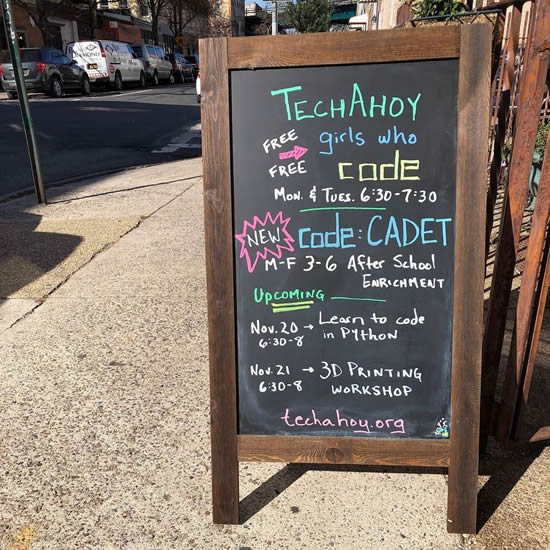 TECHAHOY
FREE girls who
FREE code
MON. & TUES. 6:30-7:30
NEW code:CADET
M-F 3-6 After School
ENRICHMENT
UPCOMING
Nov. 20 → Learn to code
6:30-8 in PYthon
Nov. 21 → 3D PRINTING
6:30-8 WORKSHOP
techahoy.org